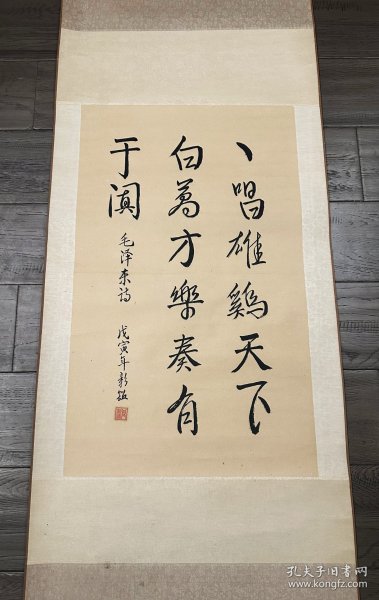 一唱雄鷄天下
白萬方樂奏有
于阗
毛泽东诗
戊寅年
孔夫子旧书网
www.kongfz.com